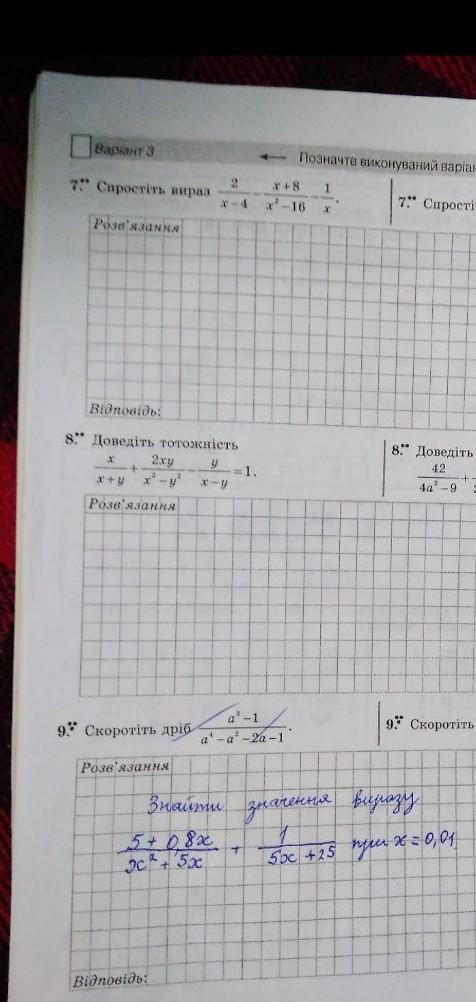 Варіант 3
← Позначте виконуваний варіан
7.•• Спростіть вираз 2/(x−4) − (x+8)/(x²−16) − 1/x.
7.•• Спрості
Розв'язання
Відповідь:
8.•• Доведіть тотожність
x/(x+y) + 2xy/(x²−y²) − y/(x−y) = 1.
8.•• Доведіть
42/(4a²−9) +
Розв'язання
9. Скоротіть дріб (a³−1)/(a⁴−a²−2a−1).
9. Скоротіть
Розв'язання
Знайти значення виразу
(5+0,8x)/(x²+5x) + 1/(5x+25) при x=0,01
Відповідь: